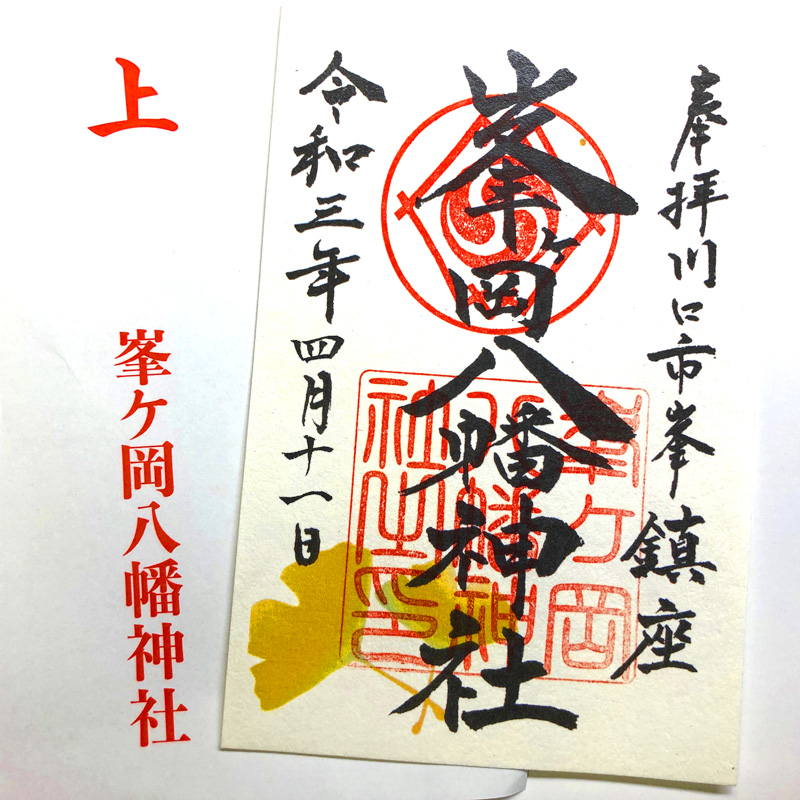 奉拝川口市峯鎮座
峯ヶ岡八幡神社
令和三年四月十一日
峯ケ岡
八幡神
社之印
上
峯ケ岡八幡神社